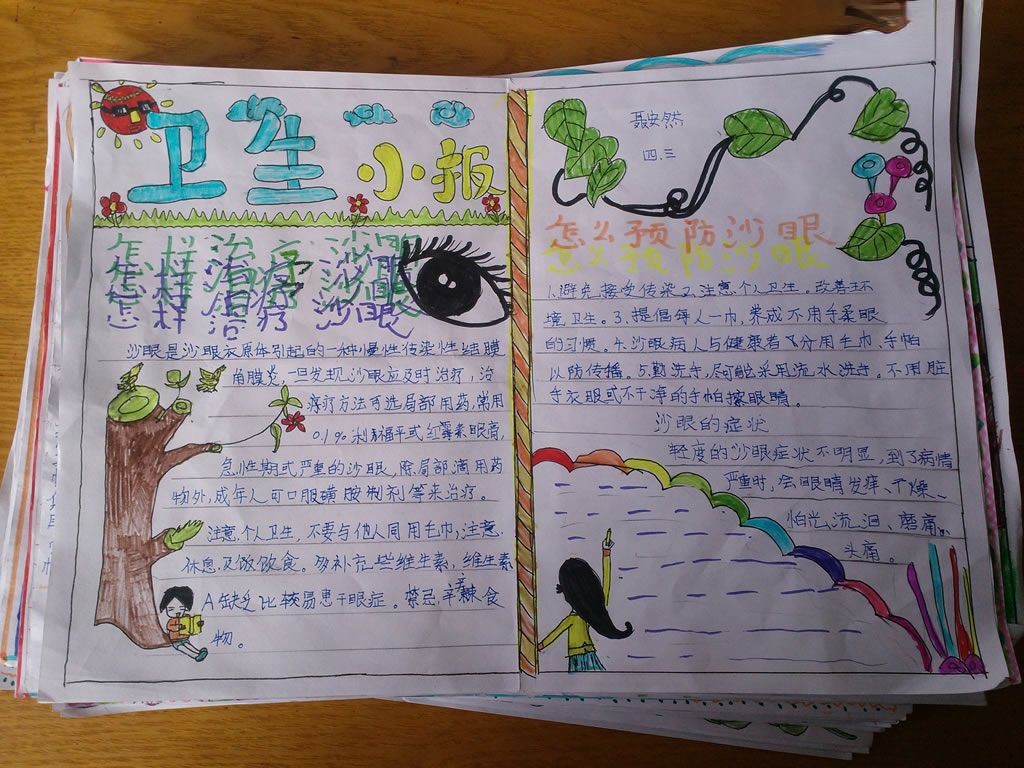 卫生小报
怎样治疗沙眼
怎样治疗沙眼
沙眼是沙眼衣原体引起的一种慢性传染性结膜
角膜炎,一旦发现沙眼应及时治疗,治
疗方法可选局部用药,常用
0.1%利福平或红霉素眼膏,
急性期或严重的沙眼,除局部滴用药
物外,成年人可口服磺胺制剂等来治疗。
注意个人卫生,不要与他人同用毛巾,注意
休息及饭饮食。多补充些维生素,维生素
A缺乏比较易患干眼症。禁忌,辛辣食
物。
聂安然
四.三
怎么预防沙眼
怎么预防沙眼
1.避免接受传染2.注意个人卫生。改善环
境卫生。3.提倡每人一巾,养成不用手柔眼
的习惯。4.沙眼病人与健康者分用毛巾、手帕
以防传播。5.勤洗手,尽可能采用流水洗手。不用脏
手衣服或不干净的手帕擦眼睛。
沙眼的症状
轻度的沙眼症状不明显,到了病情
严重时,会眼睛发痒、干燥、
怕光、流泪、磨痛。
头痛。